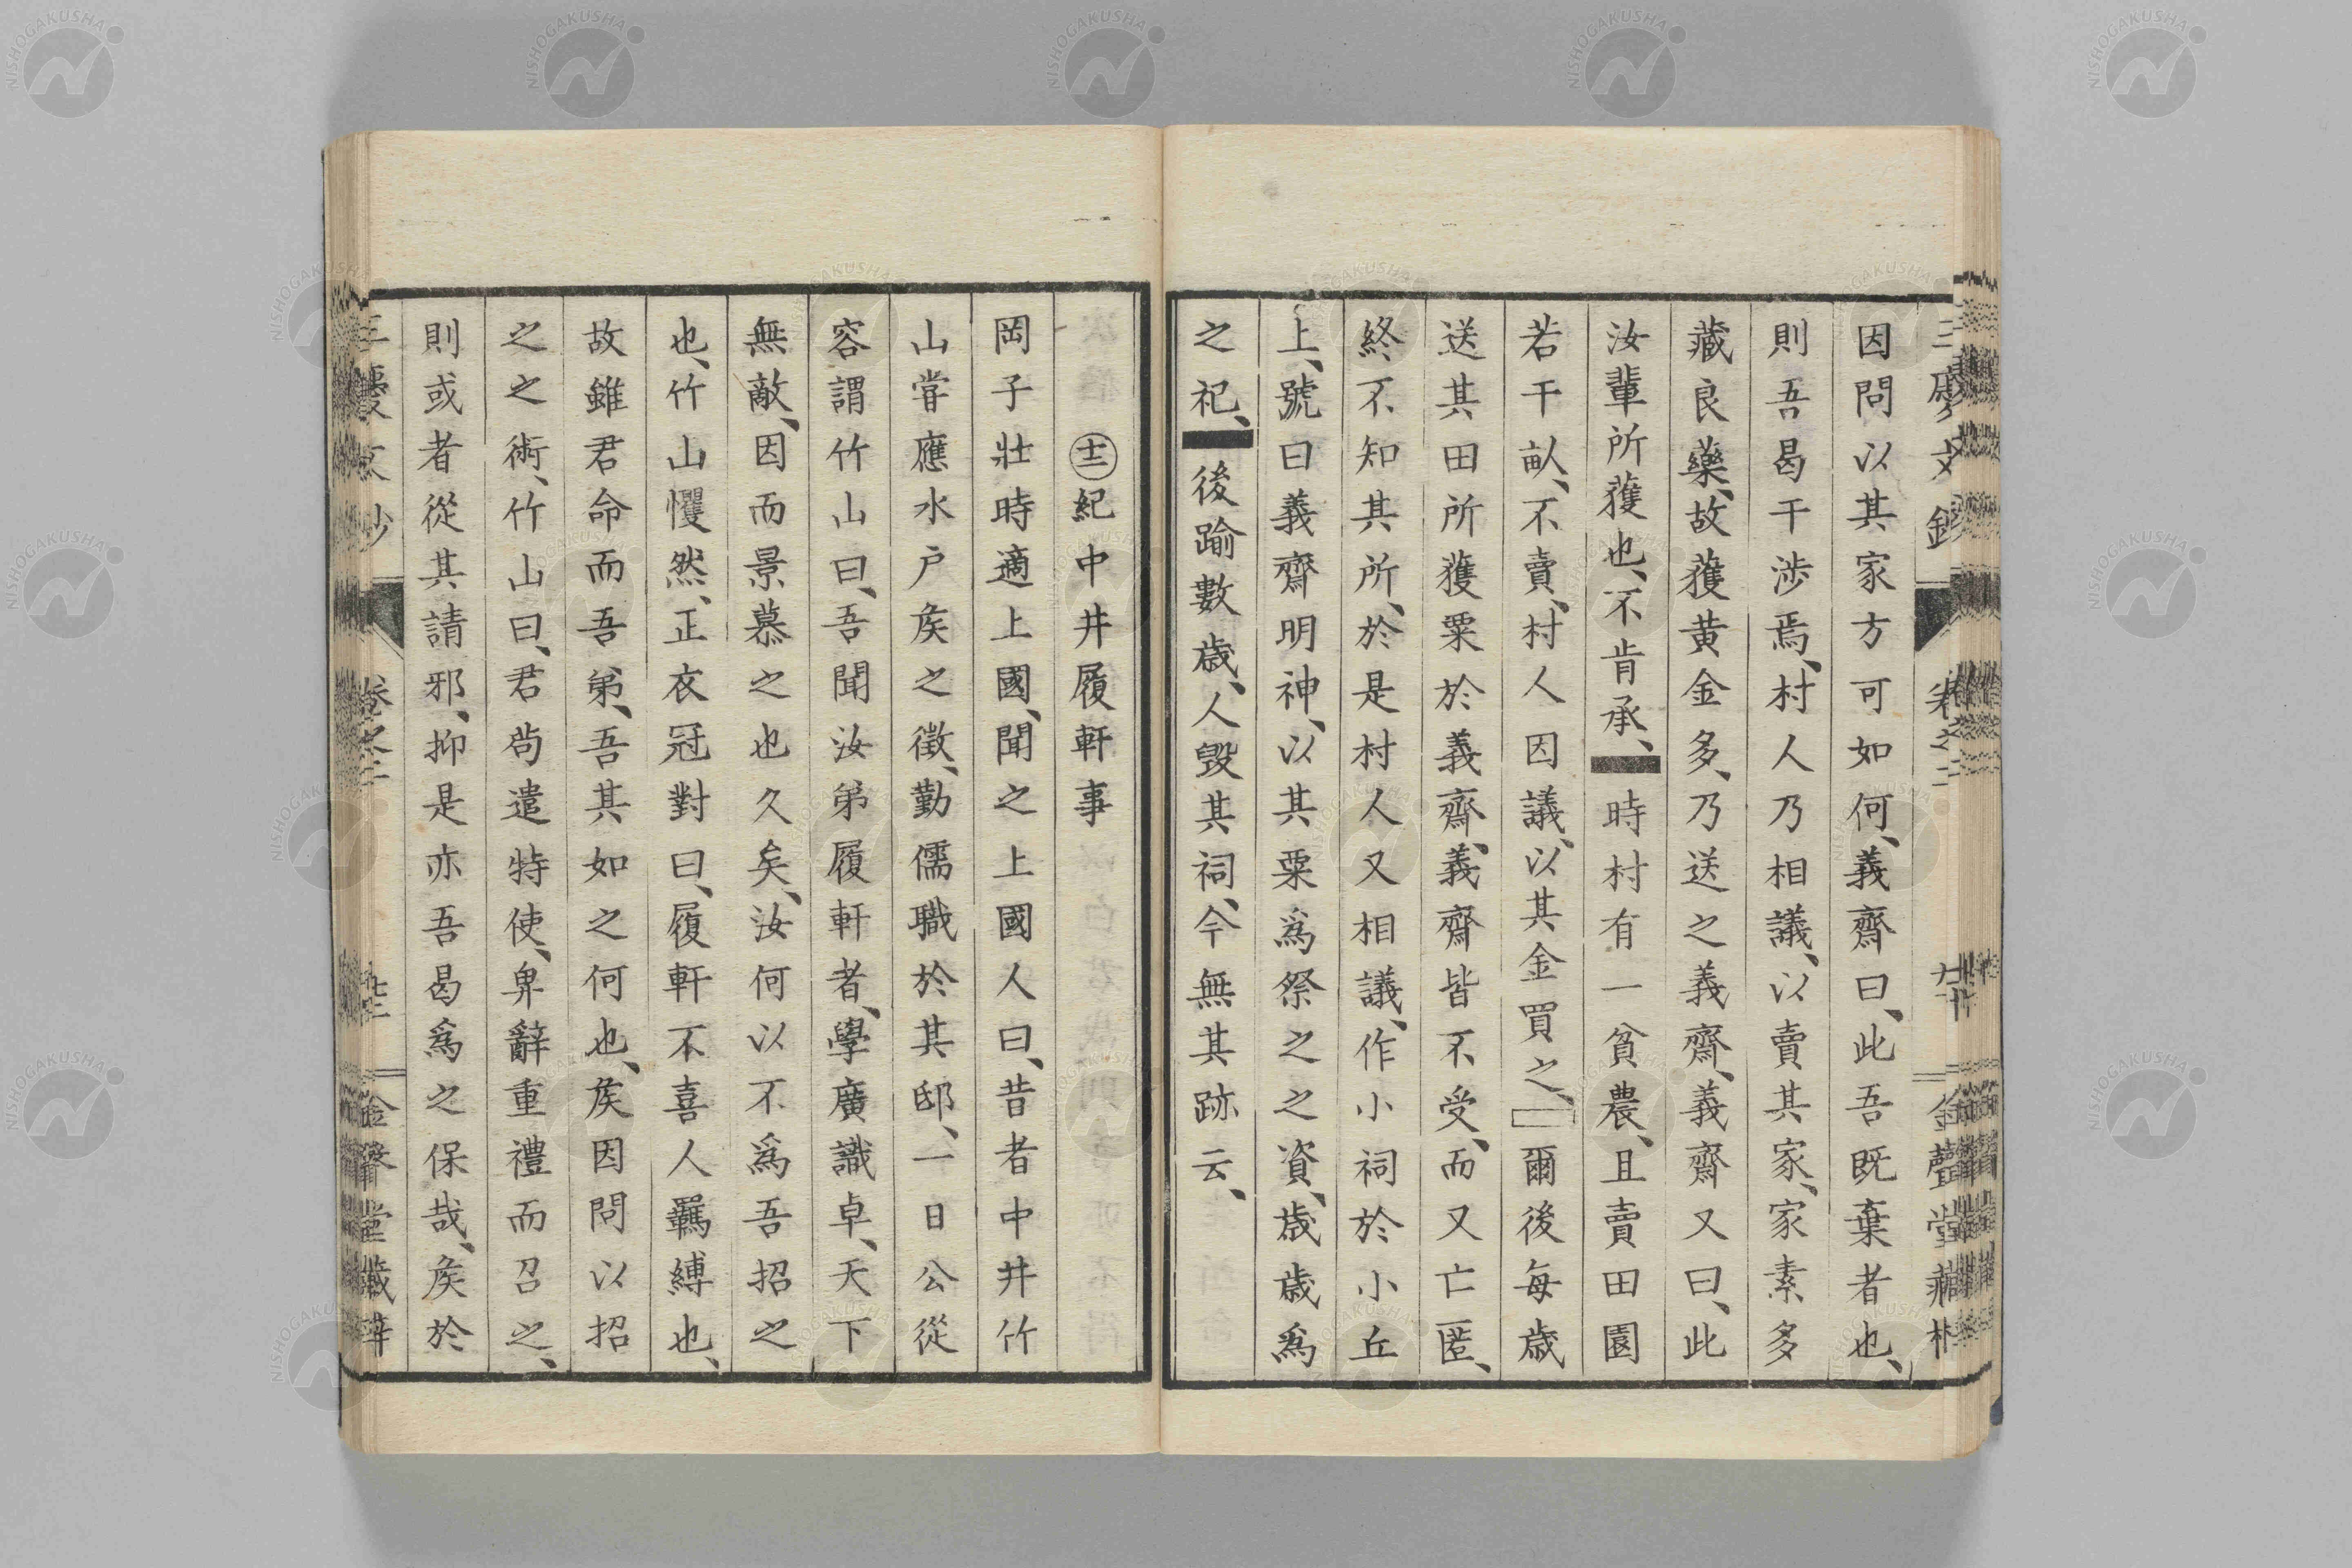 因問以其家方可如何、義齋曰、此吾既棄者也、
則吾曷干涉焉、村人乃相議、以賣其家、家素多
藏良藥、故獲黃金多、乃送之義齋、義齋又曰、此
汝輩所獲也、不肯承、時村有一貧農、且賣田園
若干畝、不賣、村人因議、以其金買之、爾後每歲
送其田所獲粟於義齋、義齋皆不受、而又亡匿、
終不知其所、於是村人又相議、作小祠於小丘
上、號曰義齋明神、以其粟爲祭之之資、歲歲爲
之祀、後踰數歲、人毀其祠、今無其跡云、
㊉二紀中井履軒事
岡子壯時適上國、聞之上國人曰、昔者中井竹
山嘗應水户矦之徵、勤儒職於其邸、一日公從
容謂竹山曰、吾聞汝弟履軒者、學廣識卓、天下
無敵、因而景慕之也久矣、汝何以不爲吾招之
也、竹山懼然、正衣冠對曰、履軒不喜人羈縛也、
故雖君命而吾弟、吾其如之何也、矦因問以招
之之術、竹山曰、君尙遣特使、卑辭重禮而召之、
則或者從其請邪、抑是亦吾曷爲之保哉、矦於
卷之二
金聲堂藏梓